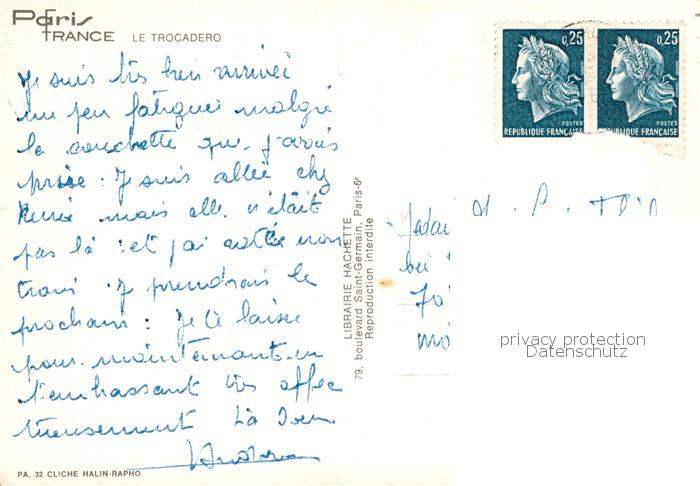 Paris
FRANCE LE TROCADERO
Je suis très bien arrivée
un peu fatiguée malgré
la couchette que j'avais
prise : Je suis allée chez
Renée mais elle n'était
pas là : et j'ai
Je prendrais le
prochain : Je te laisse
pour maintenant en
t'embrassant très affec
tueusement Ta Soeur
PA. 32 CLICHE HALIN-RAPHO
LIBRAIRIE HACHETTE
79, boulevard Saint-Germain, Paris-6e
Reproduction interdite
0,25 0,25
POSTES POSTES
REPUBLIQUE FRANÇAISE REPUBLIQUE FRANÇAISE
privacy protection
Datenschutz